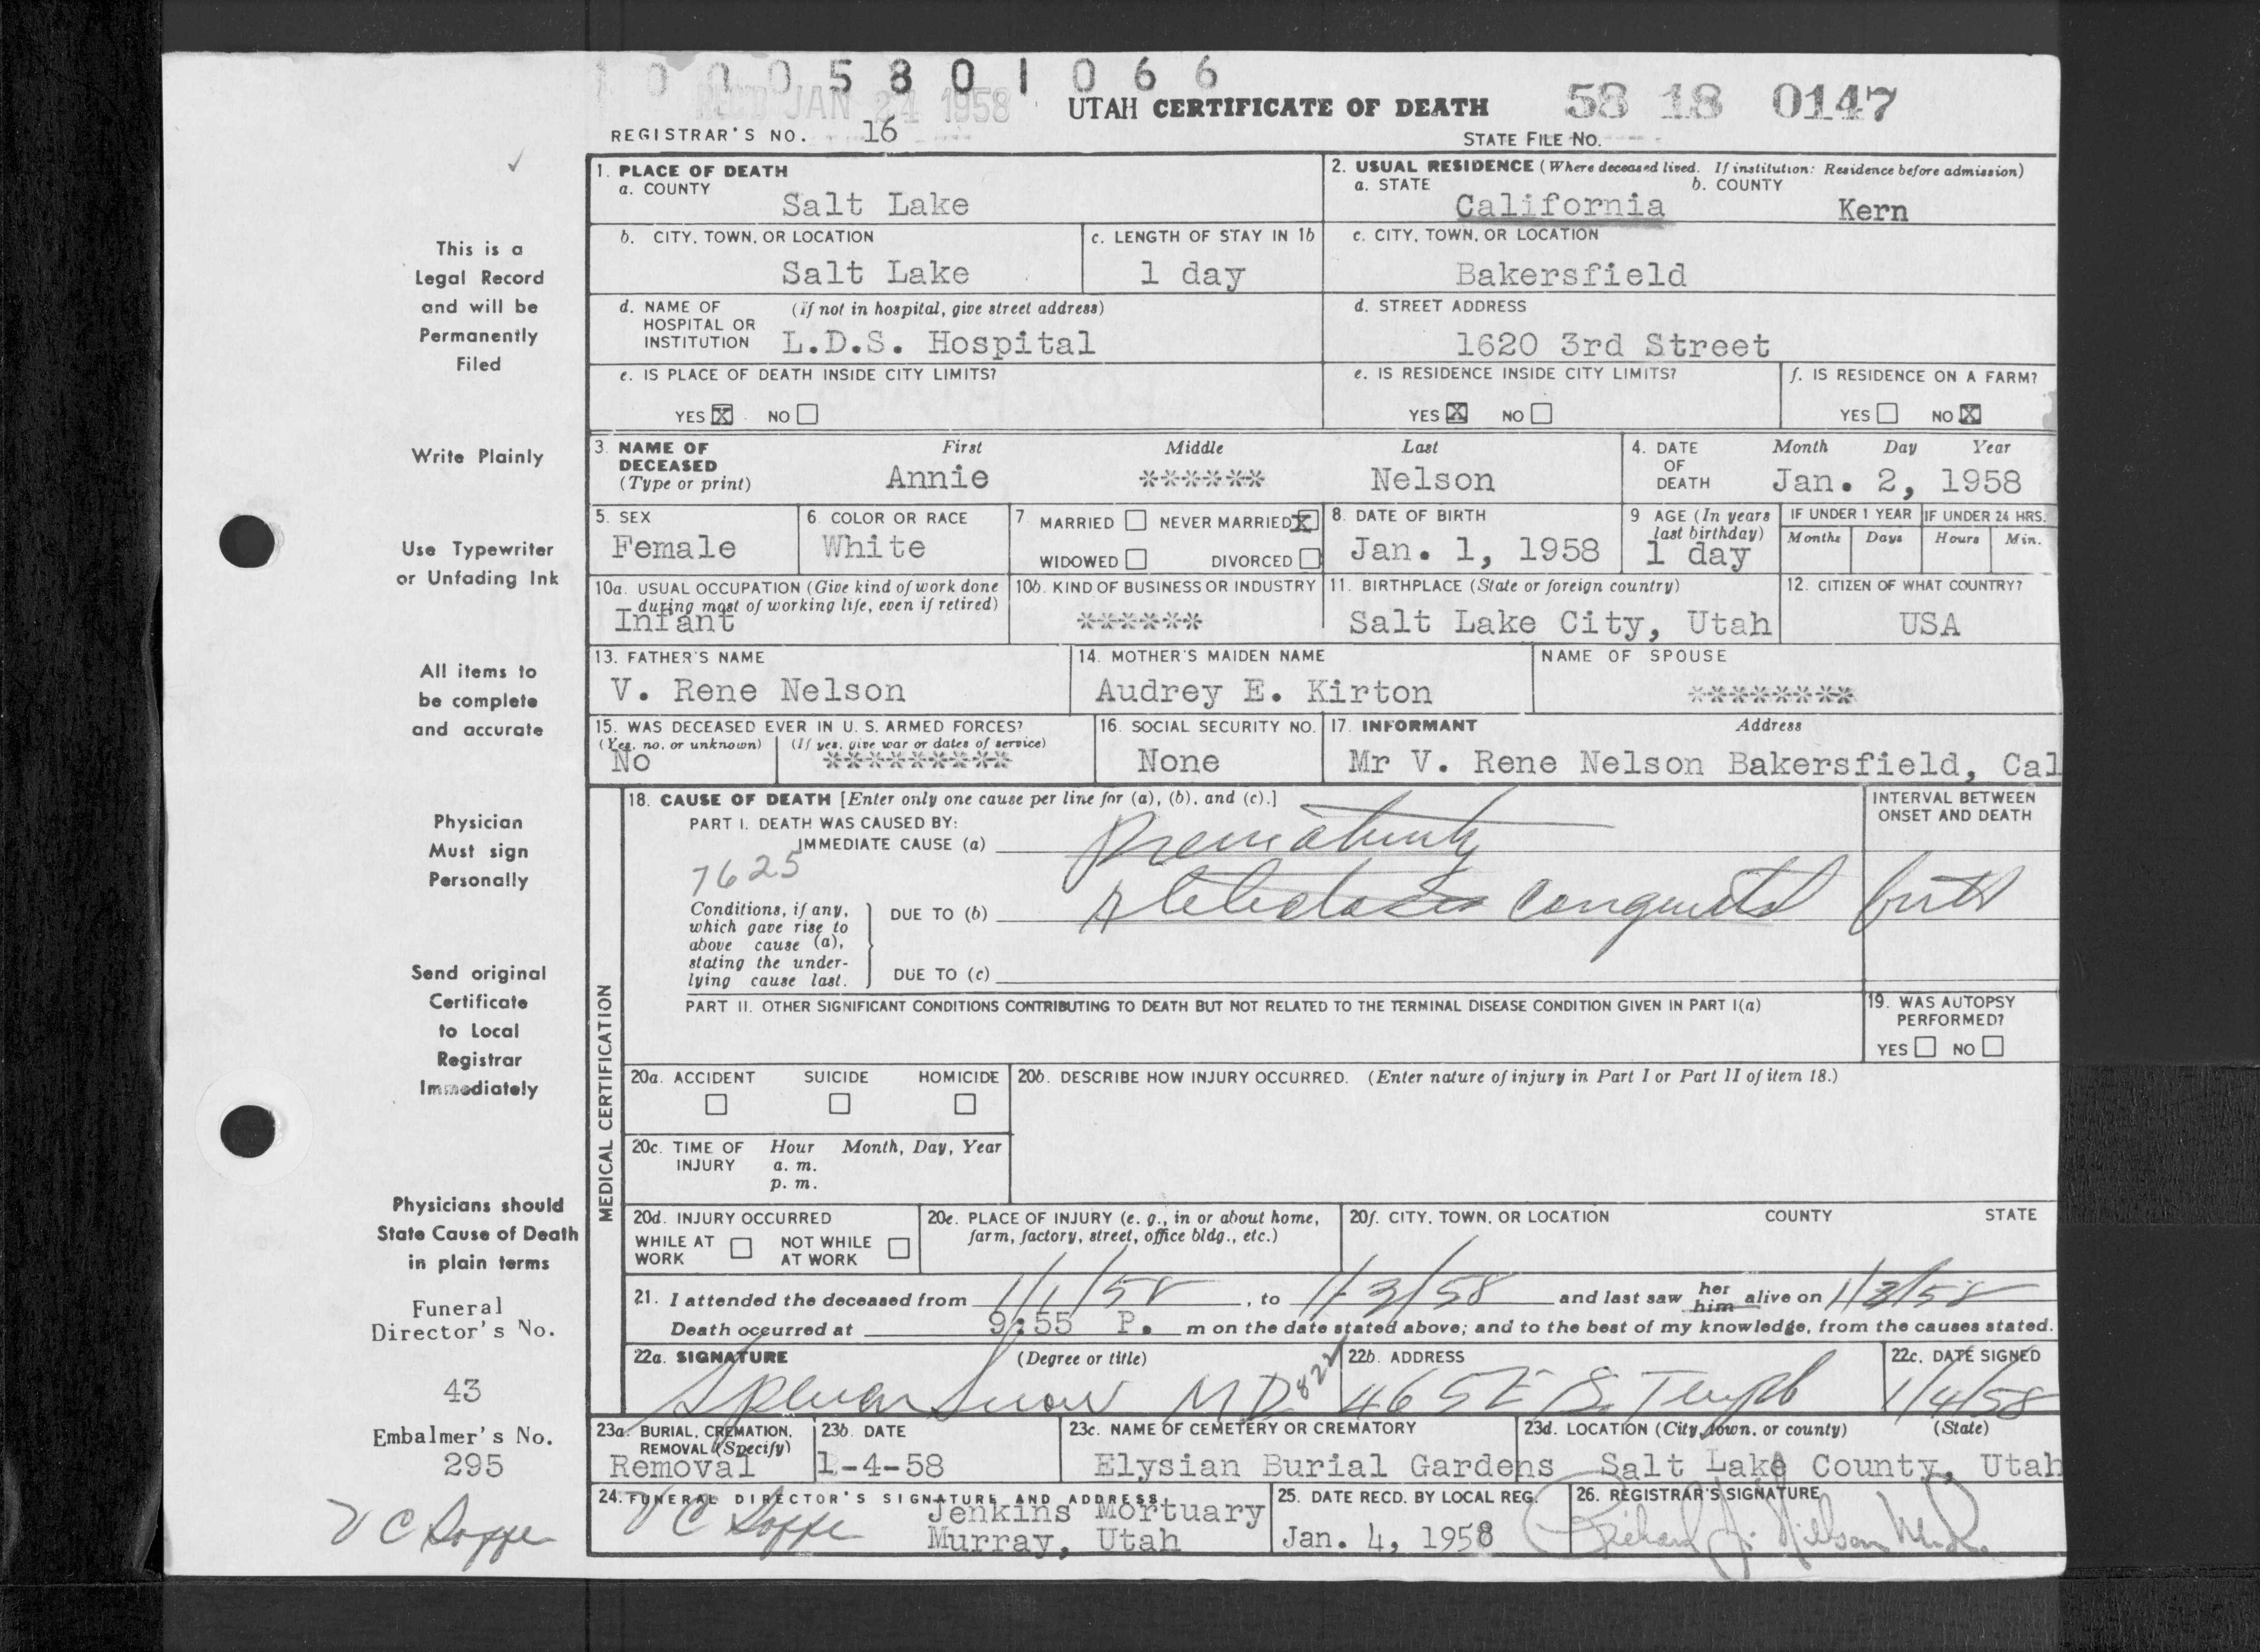 1000 5801066
REC'D JAN 24 1958
UTAH CERTIFICATE OF DEATH
58 18 0147
REGISTRAR'S NO. 16
STATE FILE NO.
This is a
Legal Record
and will be
Permanently
Filed
Write Plainly
Use Typewriter
or Unfading Ink
All items to
be complete
and accurate
Physician
Must sign
Personally
Send original
Certificate
to Local
Registrar
Immediately
Physicians should
State Cause of Death
in plain terms
Funeral
Director's No.
43
Embalmer's No.
295
1. PLACE OF DEATH
a. COUNTY
Salt Lake
2. USUAL RESIDENCE (Where deceased lived. If institution: Residence before admission)
a. STATE b. COUNTY
California Kern
b. CITY, TOWN, OR LOCATION
Salt Lake
c. LENGTH OF STAY IN 1b
1 day
c. CITY, TOWN, OR LOCATION
Bakersfield
d. NAME OF (If not in hospital, give street address)
HOSPITAL OR
INSTITUTION L.D.S. Hospital
d. STREET ADDRESS
1620 3rd Street
e. IS PLACE OF DEATH INSIDE CITY LIMITS?
YES X NO
e. IS RESIDENCE INSIDE CITY LIMITS?
YES X NO
f. IS RESIDENCE ON A FARM?
YES NO X
3. NAME OF First Middle Last
DECEASED
(Type or print) Annie ****** Nelson
4. DATE Month Day Year
OF
DEATH Jan. 2, 1958
5. SEX
Female
6. COLOR OR RACE
White
7. MARRIED NEVER MARRIED X
WIDOWED DIVORCED
8. DATE OF BIRTH
Jan. 1, 1958
9 AGE (In years
last birthday)
1 day
IF UNDER 1 YEAR IF UNDER 24 HRS.
Months Days Hours Min.
10a. USUAL OCCUPATION (Give kind of work done
during most of working life, even if retired)
Infant
10b. KIND OF BUSINESS OR INDUSTRY
******
11. BIRTHPLACE (State or foreign country)
Salt Lake City, Utah
12. CITIZEN OF WHAT COUNTRY?
USA
13. FATHER'S NAME
V. Rene Nelson
14. MOTHER'S MAIDEN NAME
Audrey E. Kirton
NAME OF SPOUSE
********
15. WAS DECEASED EVER IN U. S. ARMED FORCES?
(Yes, no, or unknown) (If yes, give war or dates of service)
No *********
16. SOCIAL SECURITY NO.
None
17. INFORMANT Address
Mr V. Rene Nelson Bakersfield, Cal
MEDICAL CERTIFICATION
18. CAUSE OF DEATH [Enter only one cause per line for (a), (b), and (c).]
PART I. DEATH WAS CAUSED BY:
IMMEDIATE CAUSE (a) Prematurity
7625
Conditions, if any,
which gave rise to
above cause (a),
stating the under-
lying cause last.
DUE TO (b) Atelectasis Congenital
DUE TO (c)
INTERVAL BETWEEN
ONSET AND DEATH
birth
PART II. OTHER SIGNIFICANT CONDITIONS CONTRIBUTING TO DEATH BUT NOT RELATED TO THE TERMINAL DISEASE CONDITION GIVEN IN PART I(a)
19. WAS AUTOPSY
PERFORMED?
YES NO
20a. ACCIDENT SUICIDE HOMICIDE
20b. DESCRIBE HOW INJURY OCCURRED. (Enter nature of injury in Part I or Part II of item 18.)
20c. TIME OF Hour Month, Day, Year
INJURY a. m.
p. m.
20d. INJURY OCCURRED
WHILE AT NOT WHILE
WORK AT WORK
20e. PLACE OF INJURY (e. g., in or about home,
farm, factory, street, office bldg., etc.)
20f. CITY, TOWN, OR LOCATION COUNTY STATE
21. I attended the deceased from 1/1/58, to 1/3/58 and last saw her him alive on 1/3/58
Death occurred at 9:55 P. m on the date stated above; and to the best of my knowledge, from the causes stated.
22a. SIGNATURE (Degree or title)
Snow MD 822
22b. ADDRESS
465 E So Temple
22c. DATE SIGNED
1/4/58
23a. BURIAL, CREMATION,
REMOVAL (Specify)
Removal
23b. DATE
1-4-58
23c. NAME OF CEMETERY OR CREMATORY
Elysian Burial Gardens
23d. LOCATION (City, town, or county) (State)
Salt Lake County, Utah
24. FUNERAL DIRECTOR'S SIGNATURE AND ADDRESS
Jenkins Mortuary
Murray, Utah
25. DATE RECD. BY LOCAL REG.
Jan. 4, 1958
26. REGISTRAR'S SIGNATURE